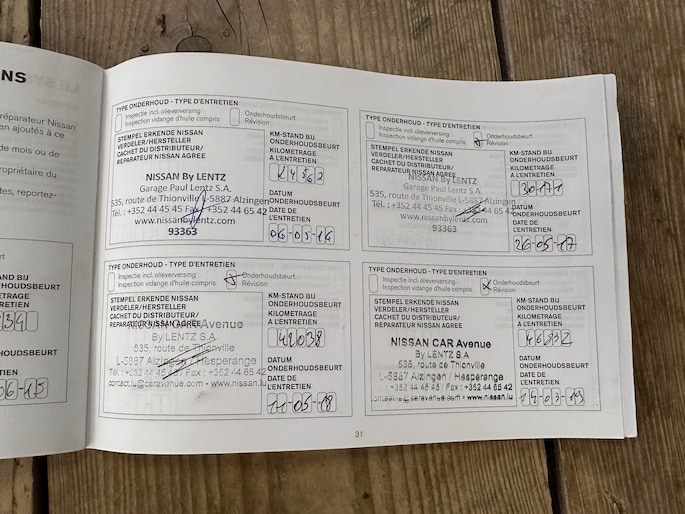 NS
réparateur Nissan
en ajoutés à ce
de mois ou de
opriétaire du
tes, reportez-
STAND BIJ
ERHOUDSBEURT
OMETRAGE
TRETIEN
34
UM
ERHOUDSBEURT
DE
TIEN
06-15
TYPE ONDERHOUD - TYPE D'ENTRETIEN
Inspectie incl. olieverversing
Inspection vidange d'huile compris
Onderhoudsbeurt
Révision
STEMPEL ERKENDE NISSAN
VERDELER/HERSTELLER
CACHET DU DISTRIBUTEUR/
REPARATEUR NISSAN AGREE
KM-STAND BIJ
ONDERHOUDSBEURT
KILOMETRAGE
A L'ENTRETIEN
NISSAN By LENTZ
Garage Paul Lentz S.A.
535, route de Thionville L-5887 Alzingen
Tél. : +352 44 45 45 Fax : +352 44 65 42
www.nissanbylentz.com
93363
DATUM
ONDERHOUDSBEURT
DATE DE
L'ENTRETIEN
06-05-16
TYPE ONDERHOUD - TYPE D'ENTRETIEN
Inspectie incl. olieverversing
Inspection vidange d'huile compris
Onderhoudsbeurt
Révision
STEMPEL ERKENDE NISSAN
VERDELER/HERSTELLER
CACHET DU DISTRIBUTEUR/
REPARATEUR NISSAN AGREE
KM-STAND BIJ
ONDERHOUDSBEURT
KILOMETRAGE
A L'ENTRETIEN
30171
NISSAN By LENTZ
Garage Paul Lentz S.A.
535, route de Thionville L-5887 Alzingen
Tél. : +352 44 45 45 Fax : +352 44 65 42
www.nissanbylentz.com
93363
DATUM
ONDERHOUDSBEURT
DATE DE
L'ENTRETIEN
26-05-17
TYPE ONDERHOUD - TYPE D'ENTRETIEN
Inspectie incl. olieverversing
Inspection vidange d'huile compris
Onderhoudsbeurt
Révision
STEMPEL ERKENDE NISSAN
VERDELER/HERSTELLER
CACHET DU DISTRIBUTEUR/
REPARATEUR NISSAN AGREE
KM-STAND BIJ
ONDERHOUDSBEURT
KILOMETRAGE
A L'ENTRETIEN
42038
NISSAN CAR Avenue
By LENTZ S.A
535, route de Thionville
L-5887 Alzingen / Hesperange
Tél. : +352 44 45 45 / Fax : +352 44 65 42
contact.lu@caravenue.com - www.nissan.lu
DATUM
ONDERHOUDSBEURT
DATE DE
L'ENTRETIEN
14-05-18
TYPE ONDERHOUD - TYPE D'ENTRETIEN
Inspectie incl. olieverversing
Inspection vidange d'huile compris
Onderhoudsbeurt
Révision
STEMPEL ERKENDE NISSAN
VERDELER/HERSTELLER
CACHET DU DISTRIBUTEUR/
REPARATEUR NISSAN AGREE
KM-STAND BIJ
ONDERHOUDSBEURT
KILOMETRAGE
A L'ENTRETIEN
NISSAN CAR Avenue
By LENTZ S.A
535, route de Thionville
L-5887 Alzingen / Hesperange
+352 44 45 45 / Fax : +352 44 65 42
www.nissan.lu
DATUM
ONDERHOUDSBEURT
DATE DE
L'ENTRETIEN
19-03-19
31